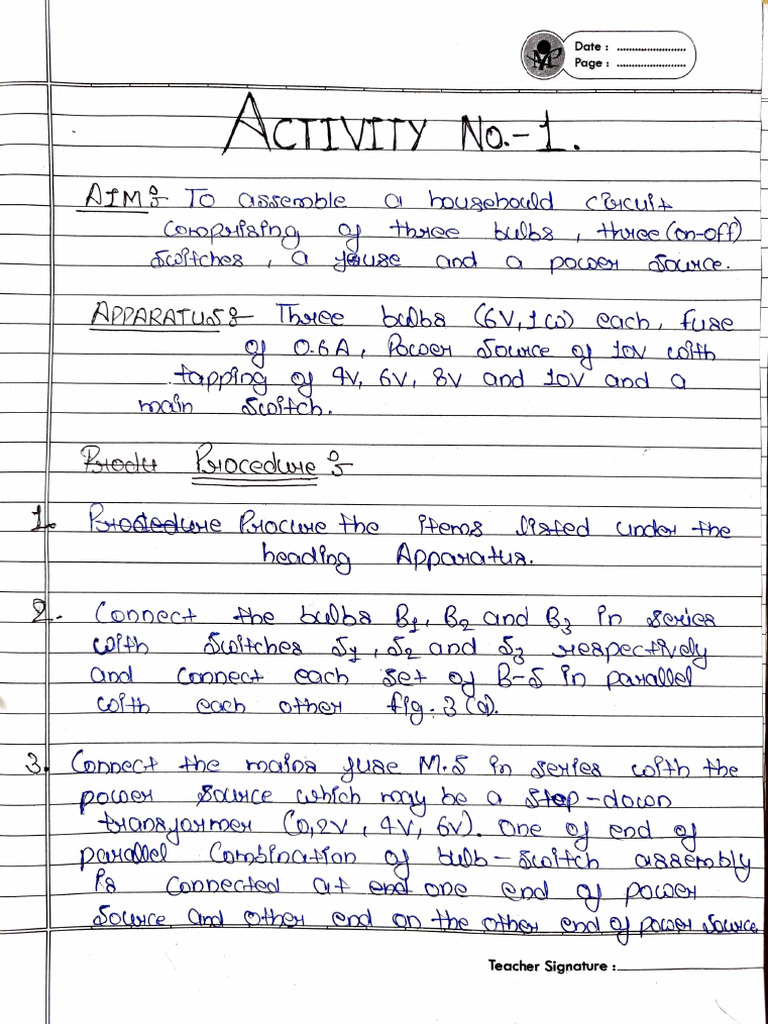 Date : ........................
Page : ........................
ACTIVITY No.-1.
AIM :- To assemble a househould circuit
comprising of three bulbs, three (on-off)
switches, a fuse and a power source.
APPARATUS :- Three bulbs (6V, 1W) each, fuse
of 0.6A, Power source of 10V with
tapping of 4V, 6V, 8V and 10V and a
main switch.
Produ Procedure :-
1. Prodedure Procure the items listed under the
heading Apparatus.
2. Connect the bulbs B1, B2 and B3 in series
with switches S1, S2 and S3 respectively
and connect each set of B-S in parallel
with each other fig. 3(a).
3. Connect the mains fuse M.S in series with the
power source which may be a step-down
transformer (0,2V, 4V, 6V). One of end of
parallel combination of bulb-switch assembly
is connected at end one end of power
source and other end on the other end of power source
Teacher Signature :